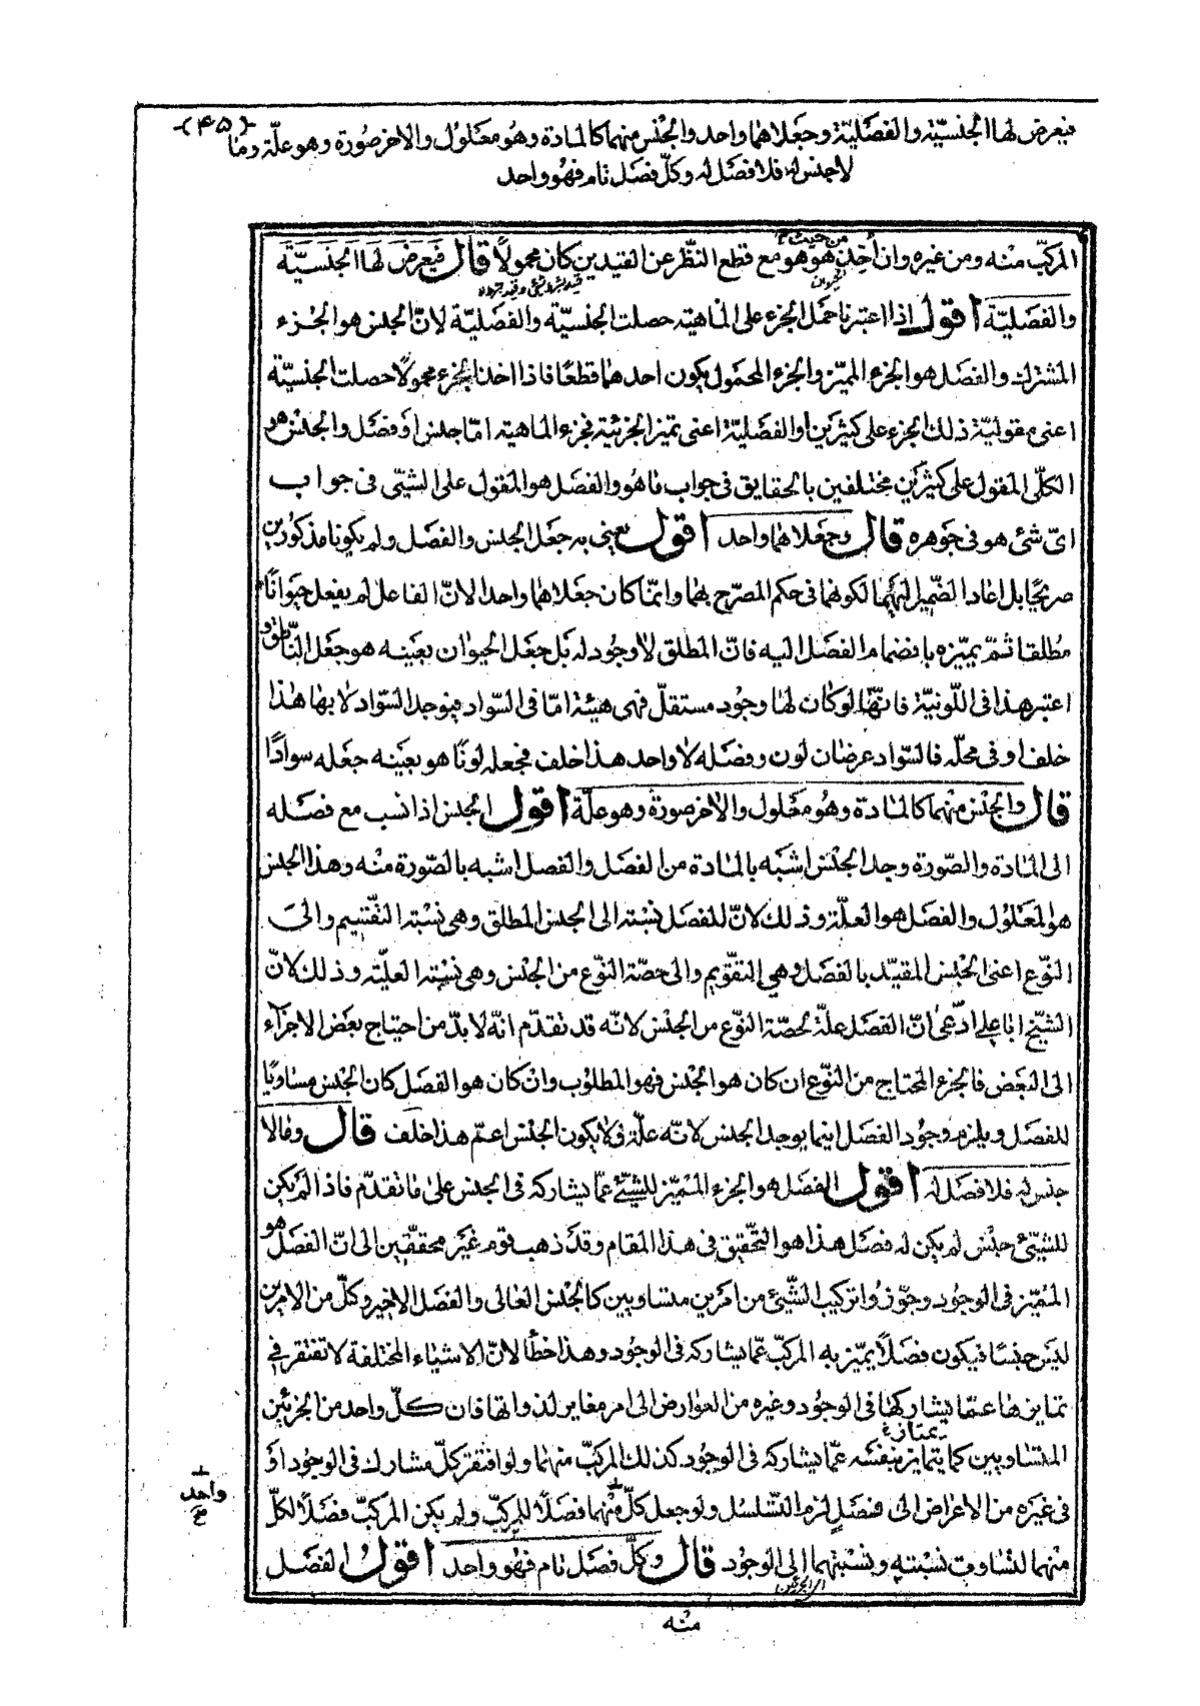 -(۴۵)-
فيعرض لها الجنسيّة والفصليّة وجعلاهما واحد والجنس منهما كالمادة وهو معلول والاخر صورة وهو علّة وما
لا جنس له فلا فصل له وكلّ فصل تام فهو واحد
المركبّ منه ومن غيره وان أخذ من حيث هو هو مع قطع النّظر عن القيدين كان محمولاً قال فيعرض لها الجنسيّة
والفصليّة اقول اذا اعتبرنا حمل الجزء على الماهية حصلت الجنسيّة والفصليّة لانّ الجنس هو الجزء
المشترك والفصل هو الجزء المميّز والجزء المحمول يكون احدهما قطعًا فاذا اخذنا الجزء محمولاً حصلت الجنسيّة
اعنى مقوليّة ذلك الجزء على كثيرين او الفصليّة اعنى تميز الجزئية فجزء الماهية امّا جنس او فصل والجنس هو
الكلّى المقول على كثيرين مختلفين بالحقايق فى جواب ما هو والفصل هو المقول على الشيئ فى جواب
اىّ شئ هو فى جوهره قال وجعلاهما واحد اقول يعنى به جعل الجنس والفصل ولم يكونا مذكورين
صريحًا بل اعاد الضّمير اليهما لكونهما فى حكم المصرّح بهما وانمّا كان جعلاهما واحدا لانّ الفاعل لم يفعل حيوانًا
مطلقا ثمّ يميّزه بانضمام الفصل اليه فانّ المطلق لا وجود له بل جعل الحيوان بعينه هو جعل النّاطق و
اعتبر هذا فى اللّونيّة فانّها لو كان لها وجود مستقلّ فهى هيئة امّا فى السّواد فيوجد السّواد لا بها هذا
خلف او فى محلّه فالسّواد عرضان لون وفصله لا واحد هذا خلف فجعله لونًا هو بعينه جعله سوادًا
قال والجنس منهما كالمادة وهو معلول والاخر صورة وهو علّة اقول الجنس اذا نسب مع فصله
الى المادة والصّورة وجد الجنس اشبه بالمادة من الفصل والفصل اشبه بالصّورة منه وهذا الجنس
هو المعلول والفصل هو العلّة وذلك لانّ للفصل نسبة الى الجنس المطلق وهى نسبة التقسيم والى
النّوع اعنى الجنس المقيّد بالفصل وهي التقويم والى حصّة النّوع من الجنس وهى نسبة العليّة وذلك لانّ
الشيخ ابا على ادّعى انّ الفصل علّة لحصّة النّوع من الجنس لانّه قد تقدّم انّه لا بدّ من احتياج بعض الاجزاء
الى البعض فالجزء المحتاج من النّوع ان كان هو الجنس فهو المطلوب وان كان هو الفصل كان الجنس مساويًا
للفصل ويلزم وجود الفصل اينما يوجد الجنس لانّه علّة فلا يكون الجنس اعمّ هذا خلف قال وما لا
جنس له فلا فصل له اقول الفصل هو الجزء المميّز للشيئ عمّا يشاركه فى الجنس على ما تقدّم فاذا لم يكن
للشيئ جنس لم يكن له فصل هذا هو التحقيق فى هذا المقام وقد ذهب قوم غير محققين الى انّ الفصل هو
المميّز فى الوجود وجوّزوا تركيب الشّيئ من امرين متساويين كالجنس العالى والفصل الاخير وكلّ من الامرين
ليس جنسًا فيكون فصلاً يميّز به المركبّ عمّا يشاركه فى الوجود وهذا خطأ لانّ الاشياء المختلفة لا تفتقر في
تمايزها عمّا يشاركها فى الوجود وغيره من العوارض الى امر مغاير لذواتها فان كلّ واحد من الجزئين
المتساويين كما يتمايز بنفسه عمّا يشاركه فى الوجود كذلك المركبّ منهما ولو افتقر كلّ مشارك فى الوجود او
فى غيره من الاعراض الى فصلٍ لزم التسلسل ولو جعل كلّ منهما فصلاً للمركبّ ولم يكن المركبّ فصلاً لكلّ
منهما لتساوت نسبته ونسبتهما الى الوجود قال وكلّ فصل تام فهو واحد اقول الفصل
يمتاز
واحد
منه